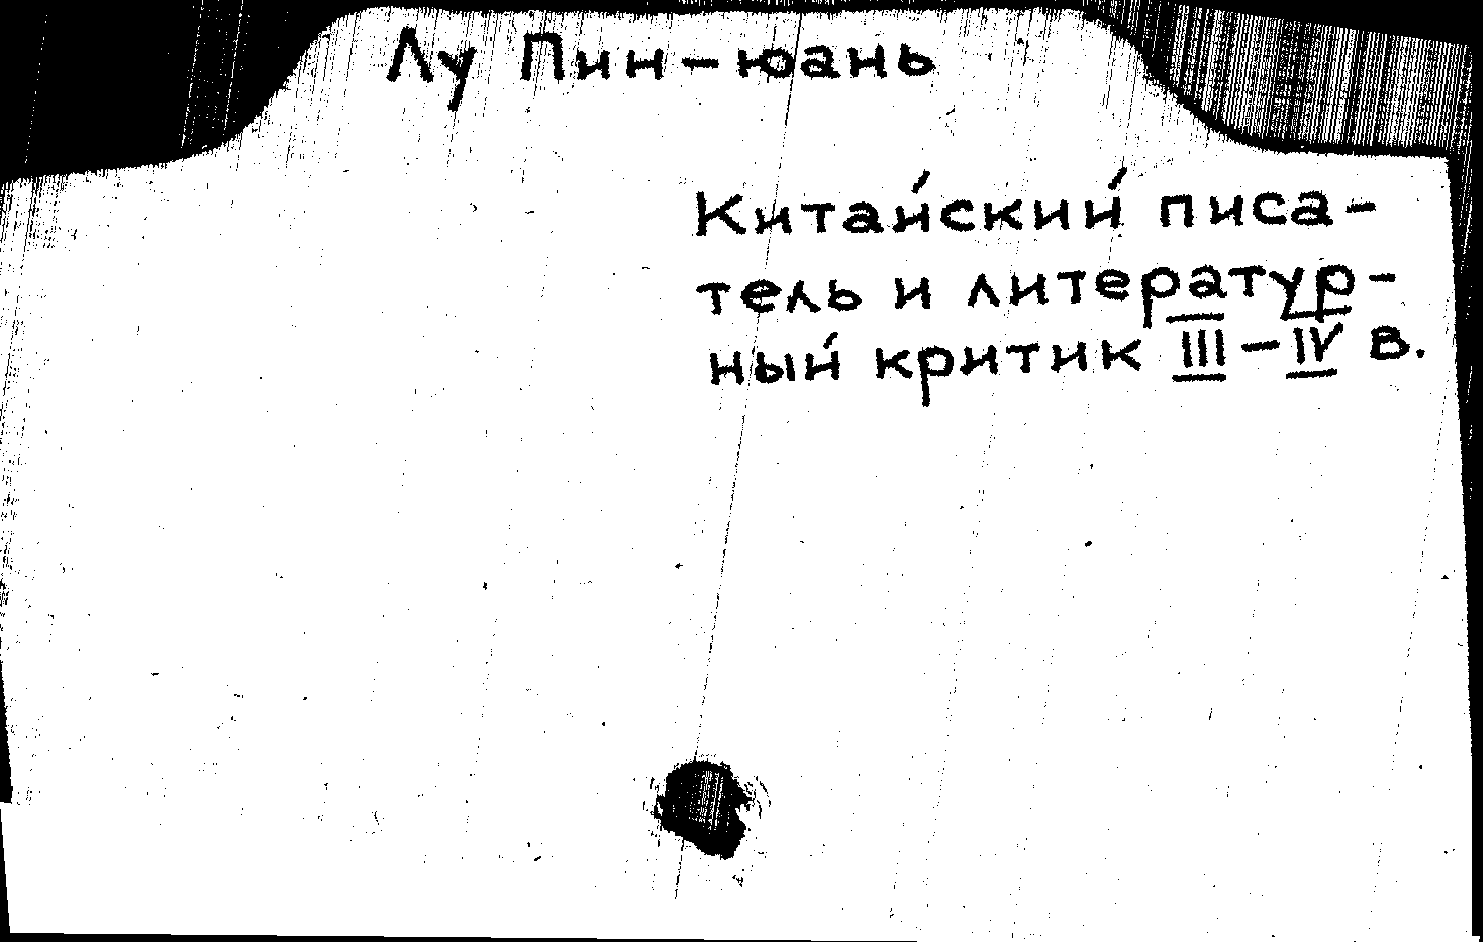 Лу Пин-юань
Китайский писа-
тель и литератур-
ный критик III-IV в.